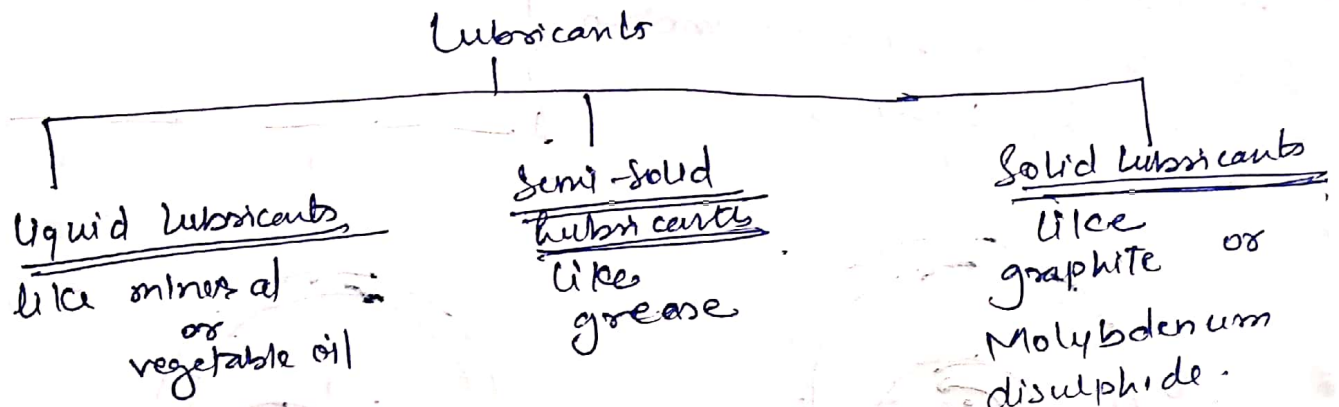 Lubricants
Liquid Lubricants
like mineral
or
vegetable oil
Semi-Solid
Lubricants
like
grease
Solid Lubricants
like
graphite or
Molybdenum
disulphide.